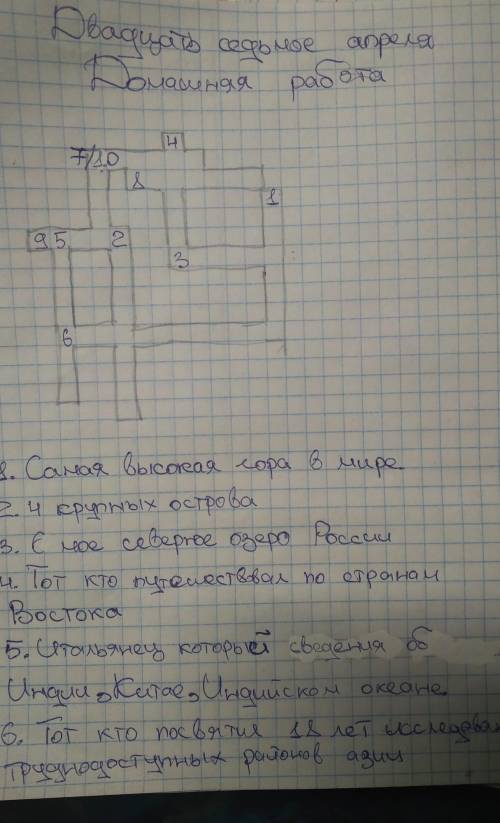 Двадцать седьмое апреля
Домашняя работа
4
7/10
8
1
9 5 2
3
6
1. Самая высокая гора в мире
2. 4 крупных острова
3. С мое северное озеро России
4. Тот кто путешествовал по странам
Востока
5. Итальянец который сведения об
Индии, Китае, Индийском океане.
6. Тот кто посвятил 18 лет исследован
труднодоступных районов азии